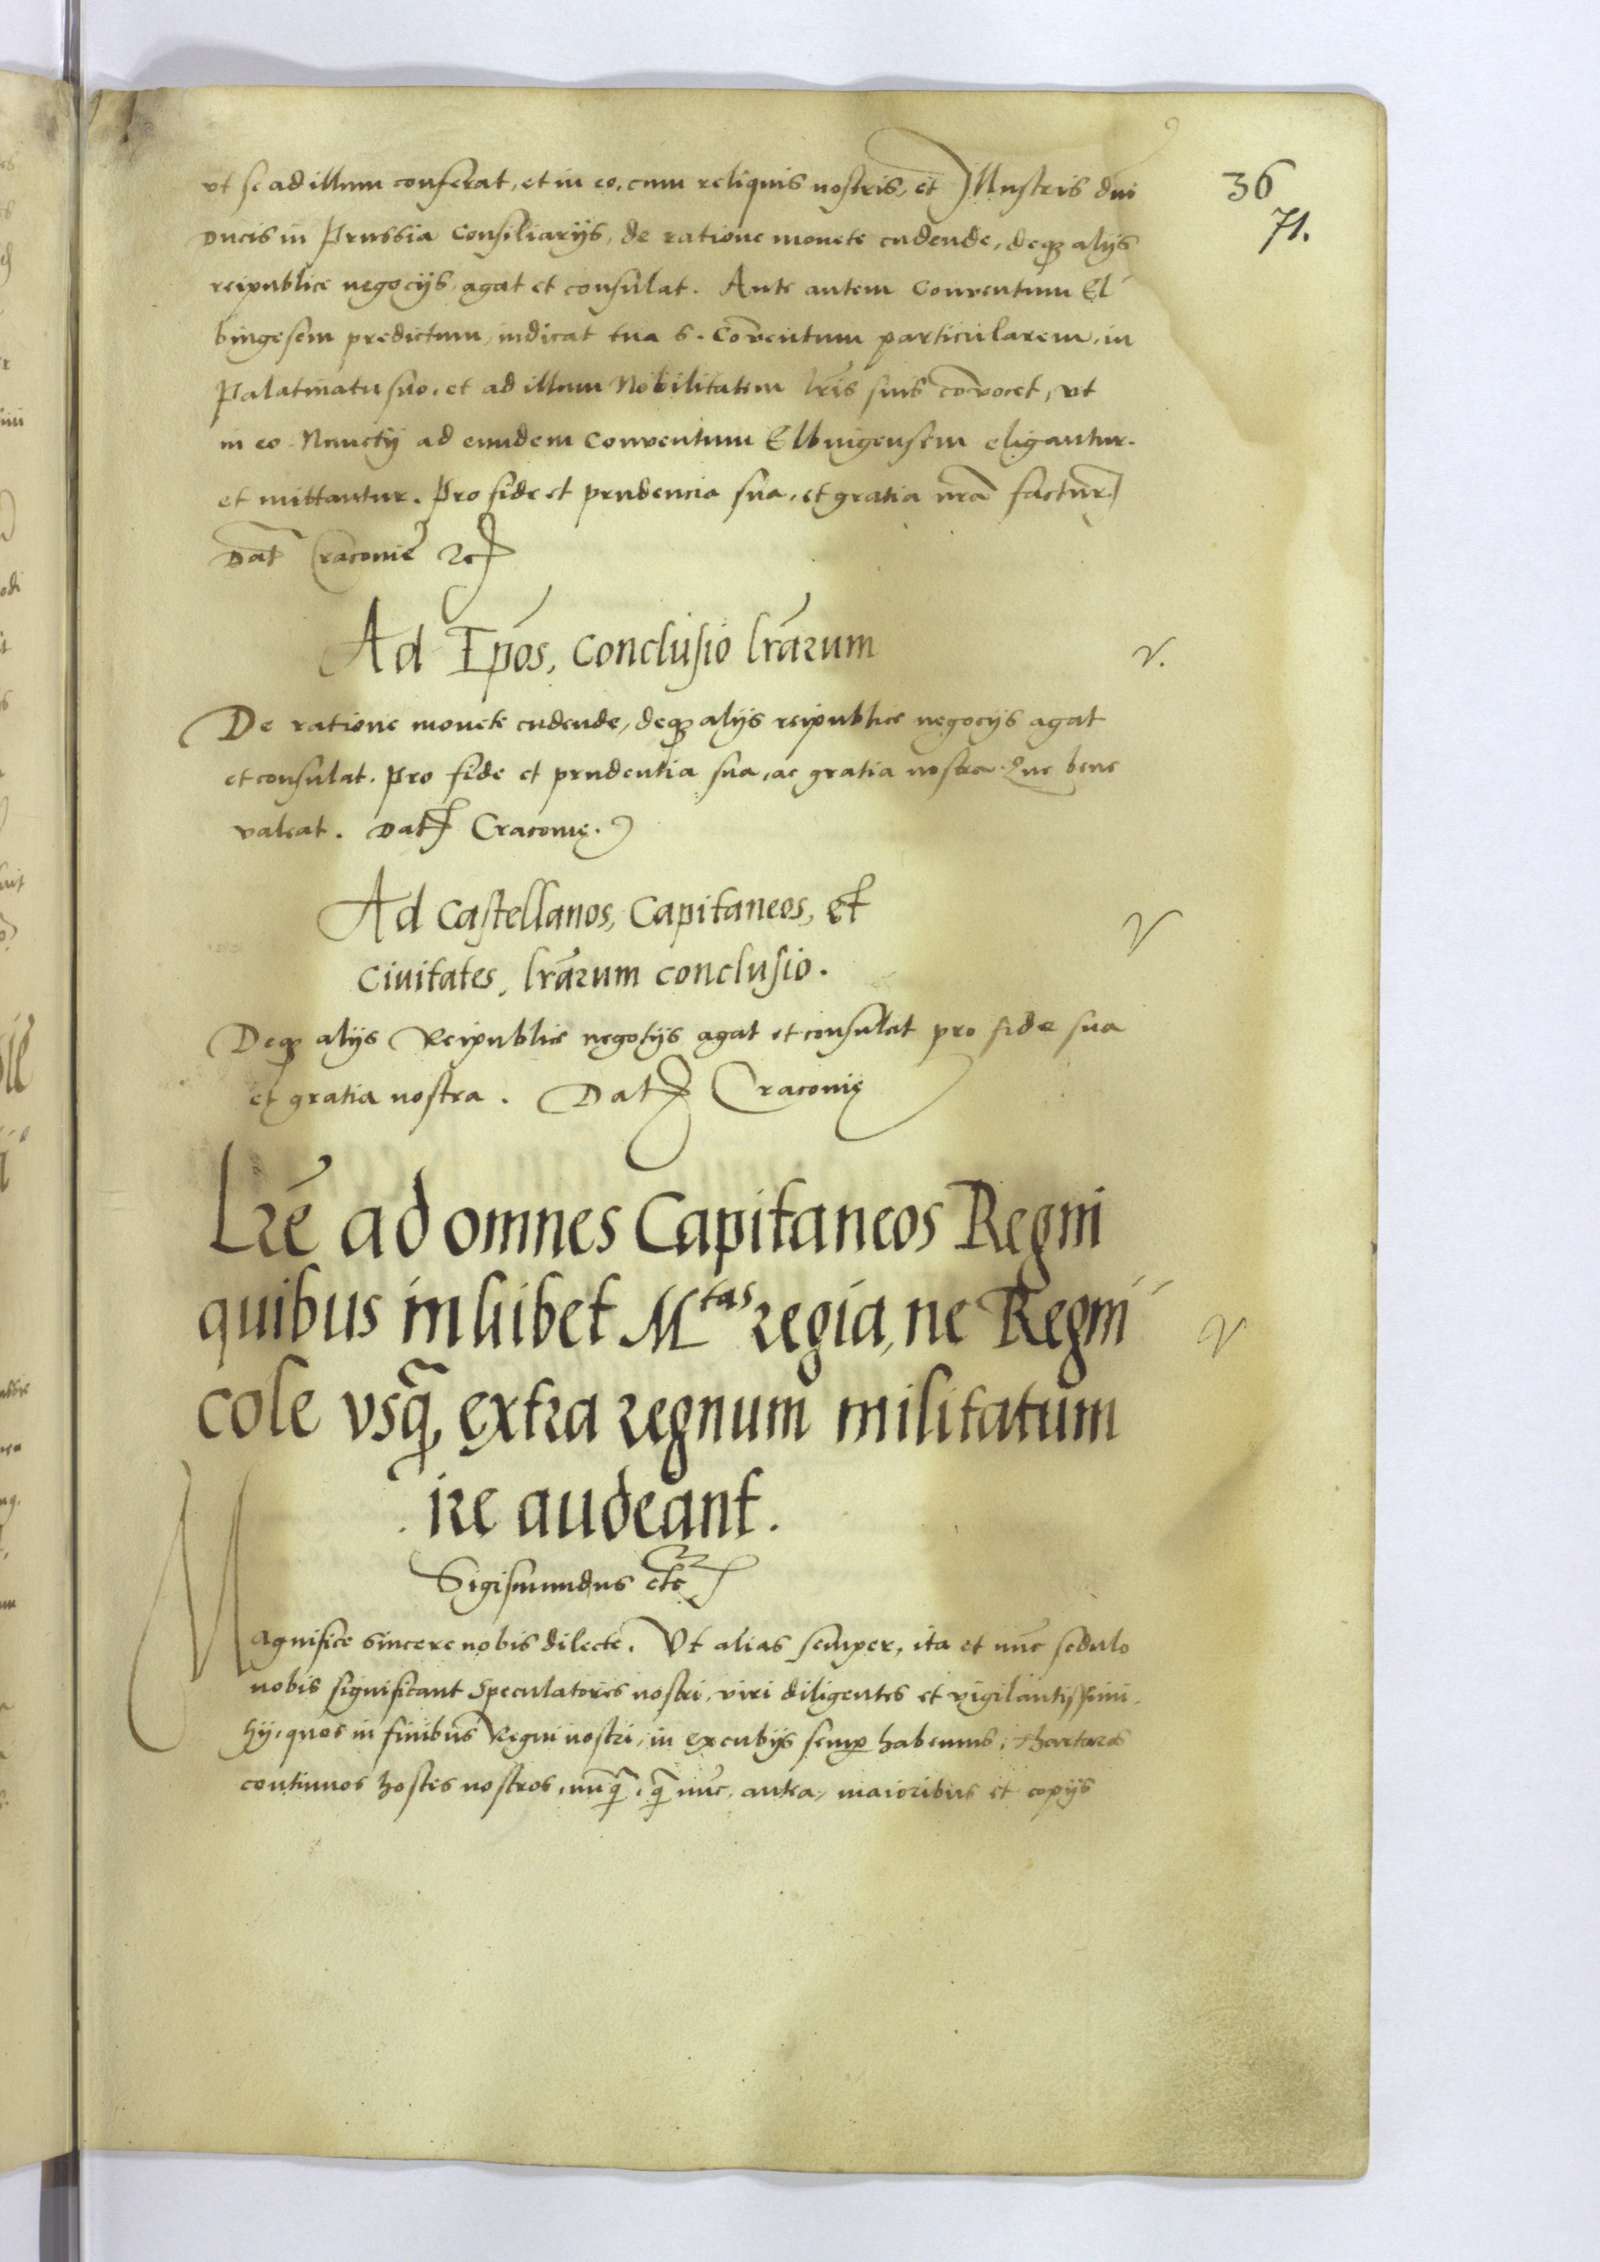 vt se ad illum conferat, et in eo, cum reliquis nostris, et Illustris dni
Ducis in Prussia Consiliarijs, de ratione monete cudende, deq3 alijs
reipublice negocijs agat et consulat. Ante autem Conventum El
bingesem predictum, indicat tua S. Cōventum particularem, in
Palatinatu suo, et ad illum Nobilitatem lr̄is suis cōvocet, vt
in eo Nunctij ad eundem Conventum Elbingensem eligantur.
et mittantur. Pro fide et prudencia sua, et gratia nr̄a factur
Dat̄ Craconie 2c
36
71.
Ad Ep̄os, Conclusio lr̄arum
v.
De ratione monete cudende, deq3 alijs reipublice negocijs agat
et consulat. Pro fide et prudentia sua, ac gratia nostra. Que bene
valeat. Dat Cracovię.
Ad Castellanos, Capitaneos, et
Civitates, lr̄arum conclusio.
v
Deq3 alijs Reipublice negotijs agat et consulat pro fide sua
et gratia nostra. Dat Cracovię
Lr̄e ad omnes Capitaneos Regni
quibus inhibet M^tas regia, ne Regni
cole vsq̄, extra regnum militatum
ire audeant.
v
Sigismundus etc
Magnifice sincere nobis dilecte. Vt alias semper, ita et nūc sedulo
nobis significant Speculatores nostri, viri diligentes et vigilantissimi,
hij, quos in finibus Regni nostri, in excubijs semp habemus, thartaros
continuos hostes nostros, nunq̄, q̄ nūc, antea, maioribus et copijs